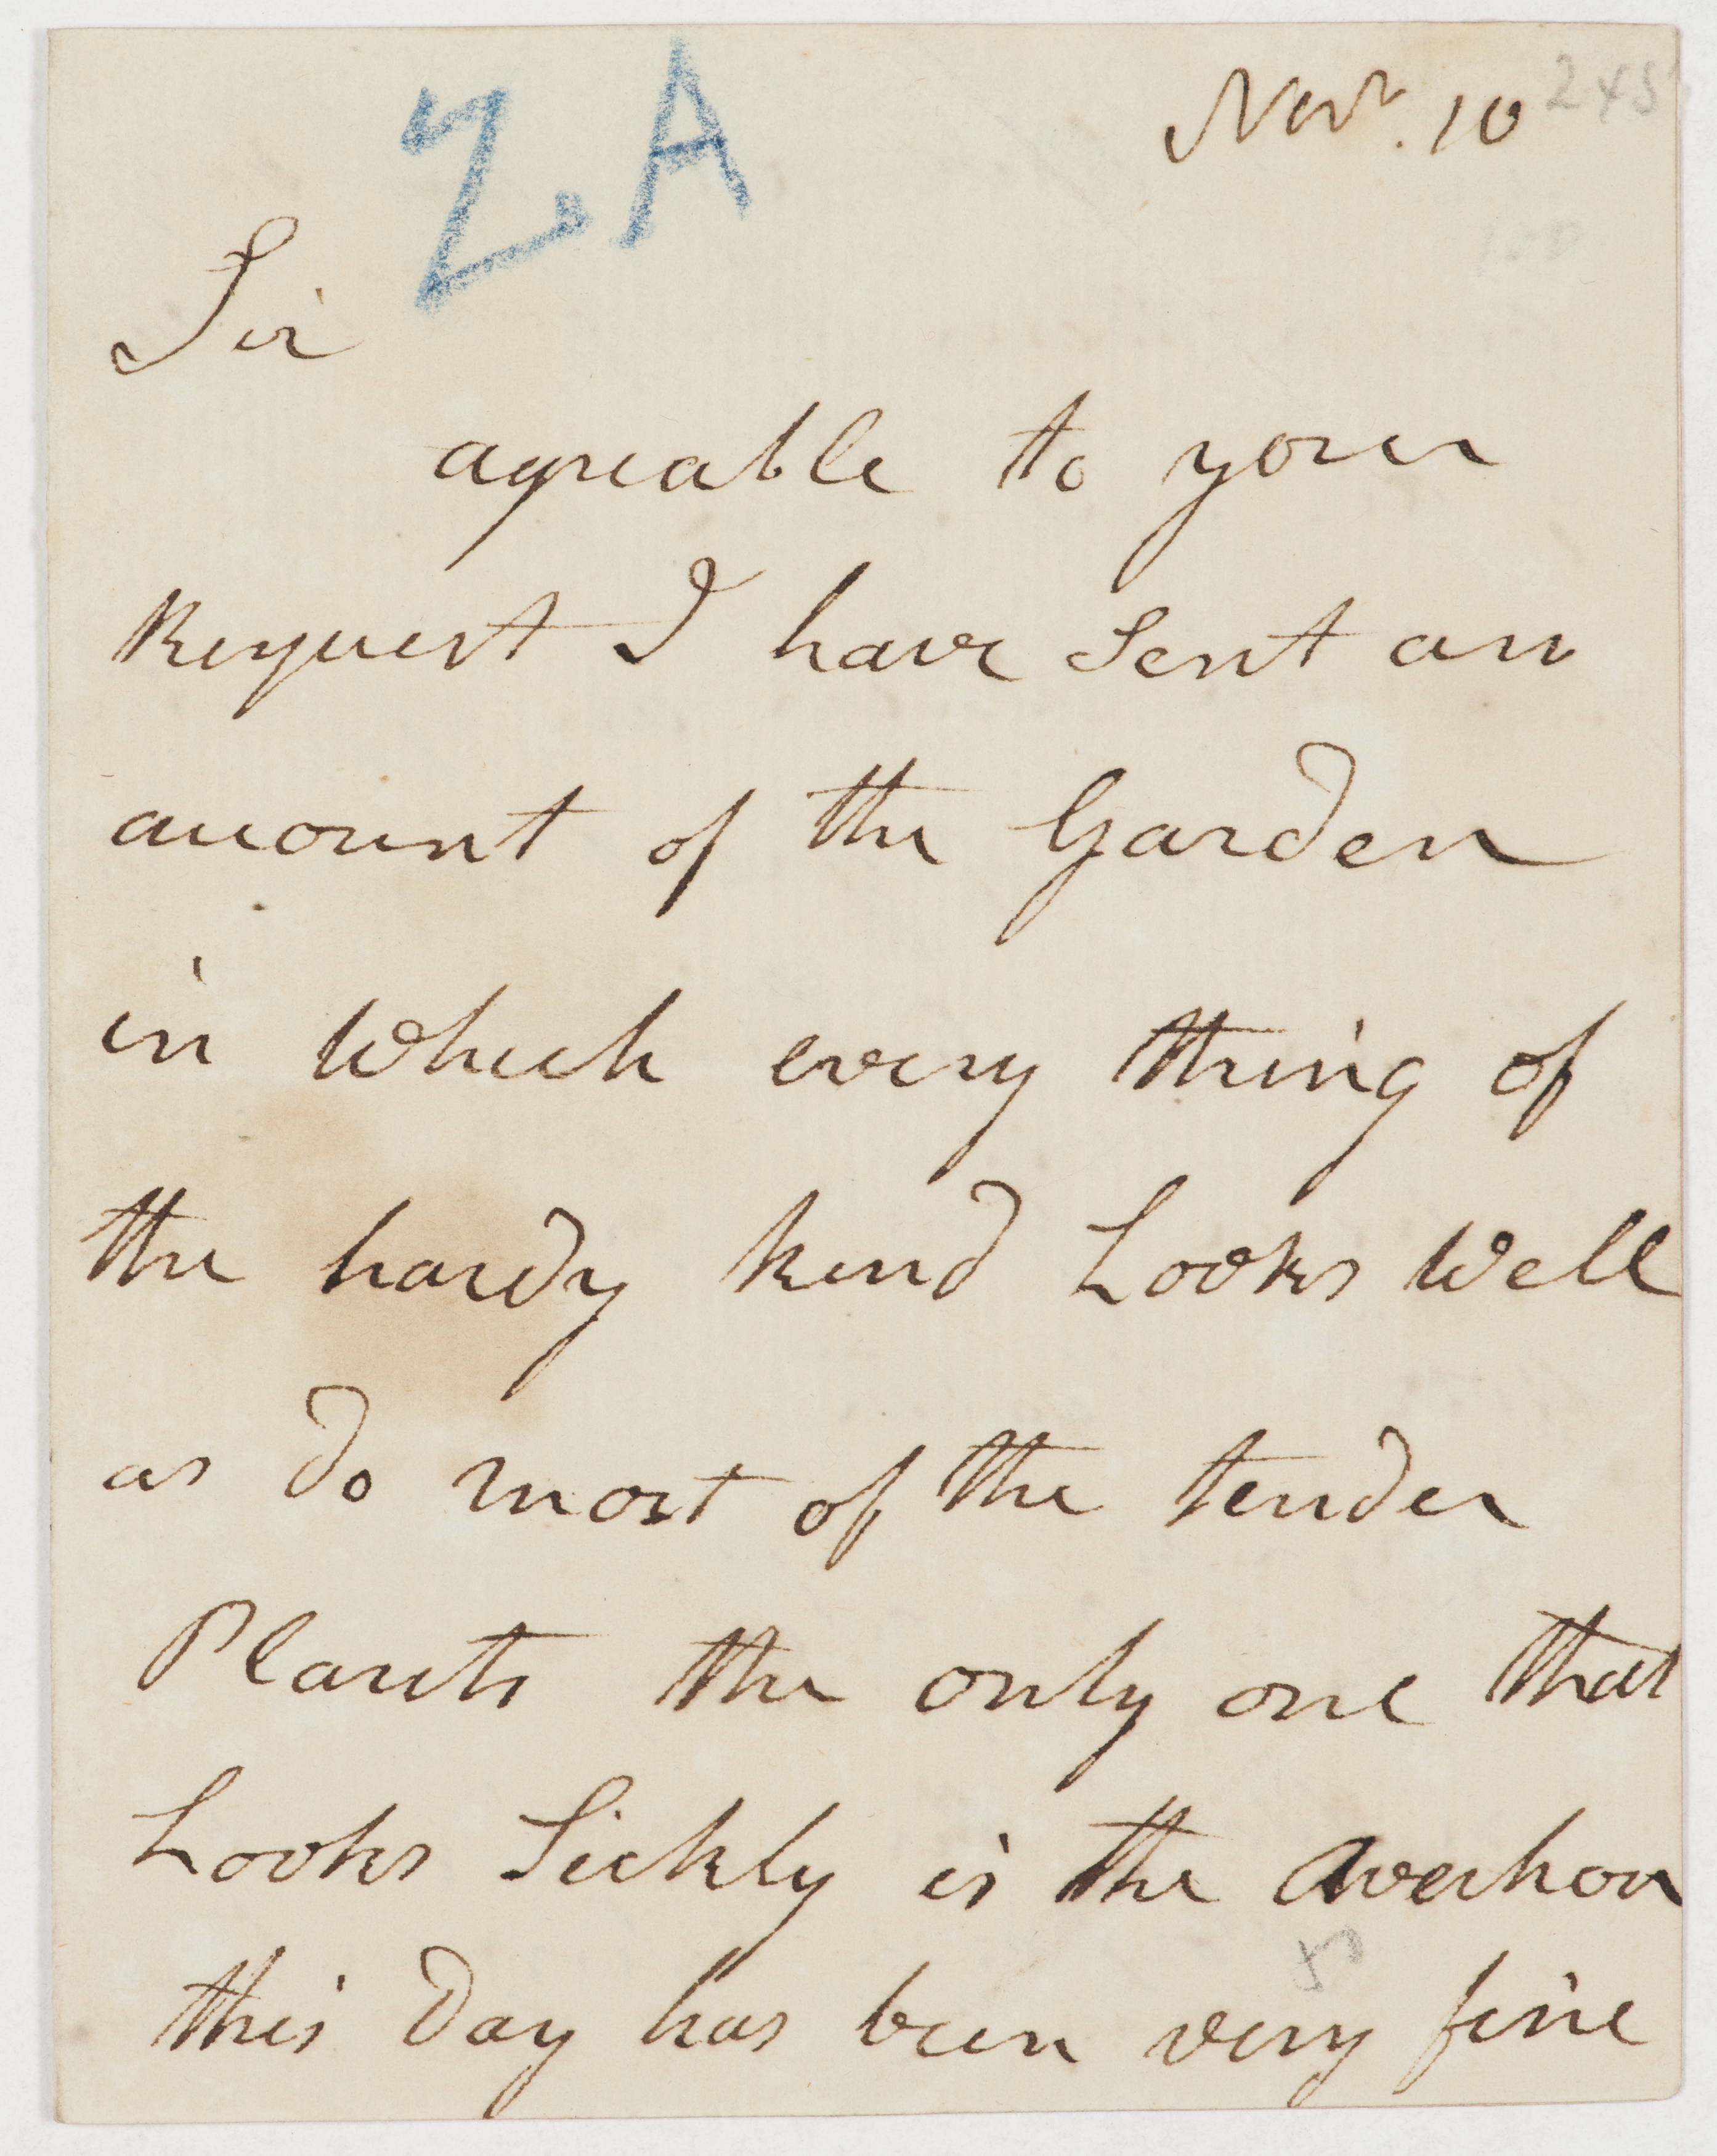 ZA
Novr. 10
245
Sir
agreable to your
Request I have Sent an
account of the Garden
in Which every thing of
the hardy kind Looks Well
as do most of the tender
Plants the only one that
Looks Sickly is the Averhoa
this Day has been very fine